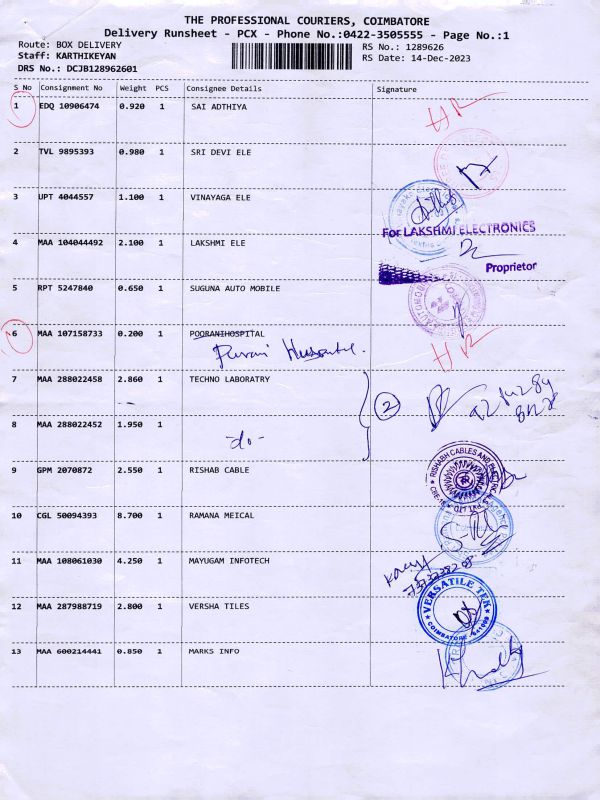 THE PROFESSIONAL COURIERS, COIMBATORE
Delivery Runsheet - PCX - Phone No.:0422-3505555 - Page No.:1
Route: BOX DELIVERY
Staff: KARTHIKEYAN
DRS No.: DCJB128962601
RS No.: 1289626
RS Date: 14-Dec-2023
S No Consignment No Weight PCS Consignee Details Signature
1 EDQ 10906474 0.920 1 SAI ADTHIYA
2 TVL 9895393 0.980 1 SRI DEVI ELE
3 UPT 4044557 1.100 1 VINAYAGA ELE
For LAKSHMI ELECTRONICS
4 MAA 104044492 2.100 1 LAKSHMI ELE
Proprietor
5 RPT 5247840 0.650 1 SUGUNA AUTO MOBILE
6 MAA 107158733 0.200 1 POORANIHOSPITAL
7 MAA 288022458 2.860 1 TECHNO LABORATRY
2
8 MAA 288022452 1.950 1
-do-
9 GPM 2070872 2.550 1 RISHAB CABLE
RISHABH CABLES AND
10 CGL 50094393 8.700 1 RAMANA MEICAL
11 MAA 108061030 4.250 1 MAYUGAM INFOTECH
12 MAA 287988719 2.800 1 VERSHA TILES
VERSATILE TEK
COIMBATORE
13 MAA 600214441 0.850 1 MARKS INFO